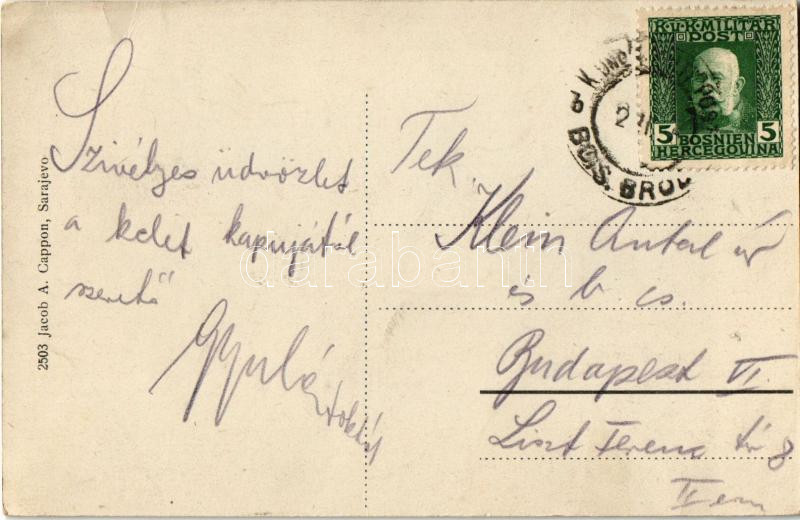 K.U.K. MILITÄR
POST
5 5
BOSNIEN
HERCEGOVINA
BOS. BROD
Szivélyes üdvözlet
a kelet kapujától
szerető
Gyulá
Tek.
Klein Antal úr
és b. cs.
Budapest VI.
Liszt Ferenc tér 8
II em
2503 Jacob A. Cappon, Sarajevo
darabanth